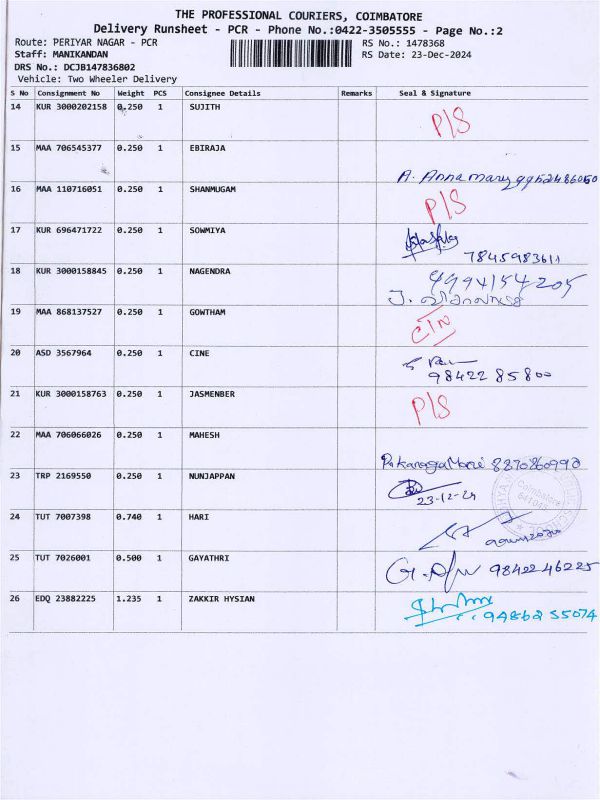 THE PROFESSIONAL COURIERS, COIMBATORE
Delivery Runsheet - PCR - Phone No.:0422-3505555 - Page No.:2
Route: PERIYAR NAGAR - PCR RS No.: 1478368
Staff: MANIKANDAN RS Date: 23-Dec-2024
DRS No.: DCJB147836802
Vehicle: Two Wheeler Delivery
S No Consignment No Weight PCS Consignee Details Remarks Seal & Signature
14 KUR 3000202158 0.250 1 SUJITH P/S
15 MAA 706545377 0.250 1 EBIRAJA
A. Anna mary
16 MAA 110716051 0.250 1 SHANMUGAM P/S
17 KUR 696471722 0.250 1 SOWMIYA
7845983611
18 KUR 3000158845 0.250 1 NAGENDRA 9994154205
19 MAA 868137527 0.250 1 GOWTHAM
20 ASD 3567964 0.250 1 CINE
98422 85800
21 KUR 3000158763 0.250 1 JASMENBER P/S
22 MAA 706066026 0.250 1 MAHESH
8870860990
23 TRP 2169550 0.250 1 NUNJAPPAN
23-12-24
Coimbatore
24 TUT 7007398 0.740 1 HARI
25 TUT 7026001 0.500 1 GAYATHRI
9842246225
26 EDQ 23882225 1.235 1 ZAKKIR HYSIAN